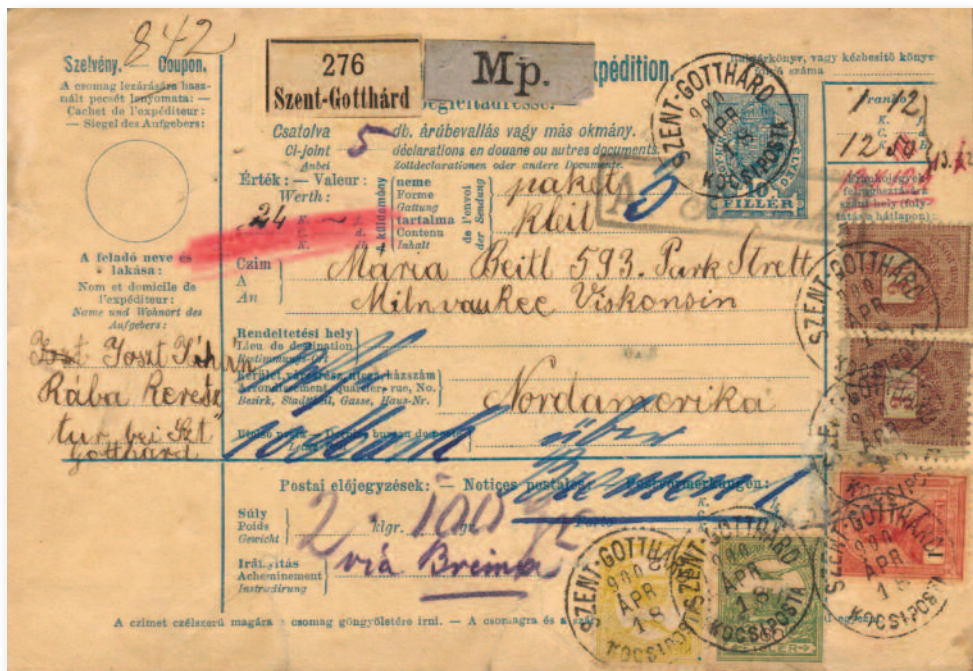 842
Szelvény. — Coupon.
A csomag lezárására hasz-
nált pecsét lenyomata: —
Cachet de l'expéditeur:
— Siegel des Aufgebers:
A feladó neve és
lakása:
Nom et domicile de
l'expéditeur:
Name und Wohnort des
Aufgebers:
Joszt
Rába Keresz
tur bei Szt
Gotthard
276
Szent-Gotthárd
Mp.
xpédition.
Begleitadresse.
vagy kézbesítő könyv
száma
Csatolva 5 db. árúbevallás vagy más okmány.
Ci-joint déclarations en douane ou autres documents.
Anbei Zolldeclarationen oder andere Documente.
Érték: — Valeur:
Werth:
24
A küldemény
de l'envoi
der Sendung
neme
Forme
Gattung
tartalma
Contenu
Inhalt
paket 5
Kleit
10
FILLÉR
Franko
1 12
12 50
Czim
A
An
Maria Beitl 593. Park Strett
Milnvaukee Viskonsin
Rendeltetési hely
Lieu de destination
Bestimmungs-Ort
Nordamerika
Kerület, városrész, utcza, házszám
Arrondissement, quartier, rue, No.
Bezirk, Stadttheil, Gasse, Haus-Nr.
über
Bremen
Postai előjegyzések: — Notices postales: — Postvormerkungen:
Súly
Poids
Gewicht
2 klgr. 100 gr.
Porto
Irányítás
Acheminement
Instradirung
via Brema
A czimet czélszerű magára a csomag göngyöletére irni. — A csomagra és a
SZENT-GOTTHÁRD
900
ÁPR
18
KOCSIPOSTA
SZENT-GOTTHÁRD
900
ÁPR
18
SZENT-GOTTHÁRD
900
ÁPR
18
KOCSIPOSTA
SZENT-GOTTHÁRD
900
ÁPR
18
SZENT-GOTTHÁRD
900
ÁPR
18
KOCSIPOSTA
1
60
FILLÉR